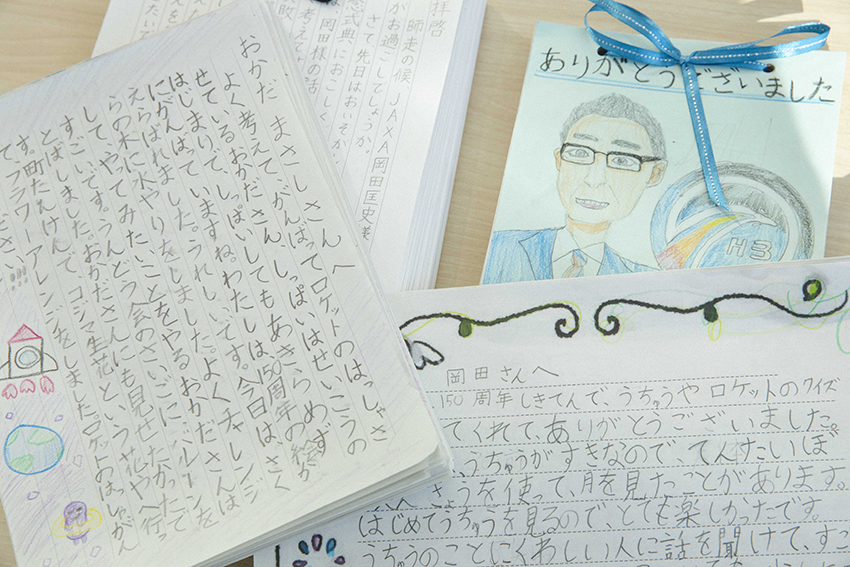 おかだ まさしさんへ
よく考えて、がんばってロケットのはっしゃさ
せているおかださん、しっぱいはせいこうの
はじまりって、しっぱいしてもあきらめず
にがんばっていますね。わたしは150周年の絵が
えらばれました。うれしいです。今日は、さく
らの木に水やりをしました。よくチャレンジ
して、やってみたいことをやるおかださんは
すごいです。うんどう会のさいごにバルーンを
とばしました。おかださんにも見せたかったで
す。町たんけんで、コジマ生花という花やへ行って
フラワーアレンジをしました。ロケットのはっしゃがん
拝啓
師走の候、JAXA岡田匡史様
がお過ごしでしょうか。
さて、先日はおいそが
念式典におこしく
岡田様の話
敗
考えて
ありがとうございました
H3
岡田さんへ
150周年しきてんで、うちゅうやロケットのクイズ
てくれて、ありがとうございました。
うちゅうがすきなので、てんたいぼ
うを使って、月を見たことがあります。
はじめてうちゅうを見るので、とても楽しかったです。
うちゅうのことにくわしい人に話を聞けて、すご